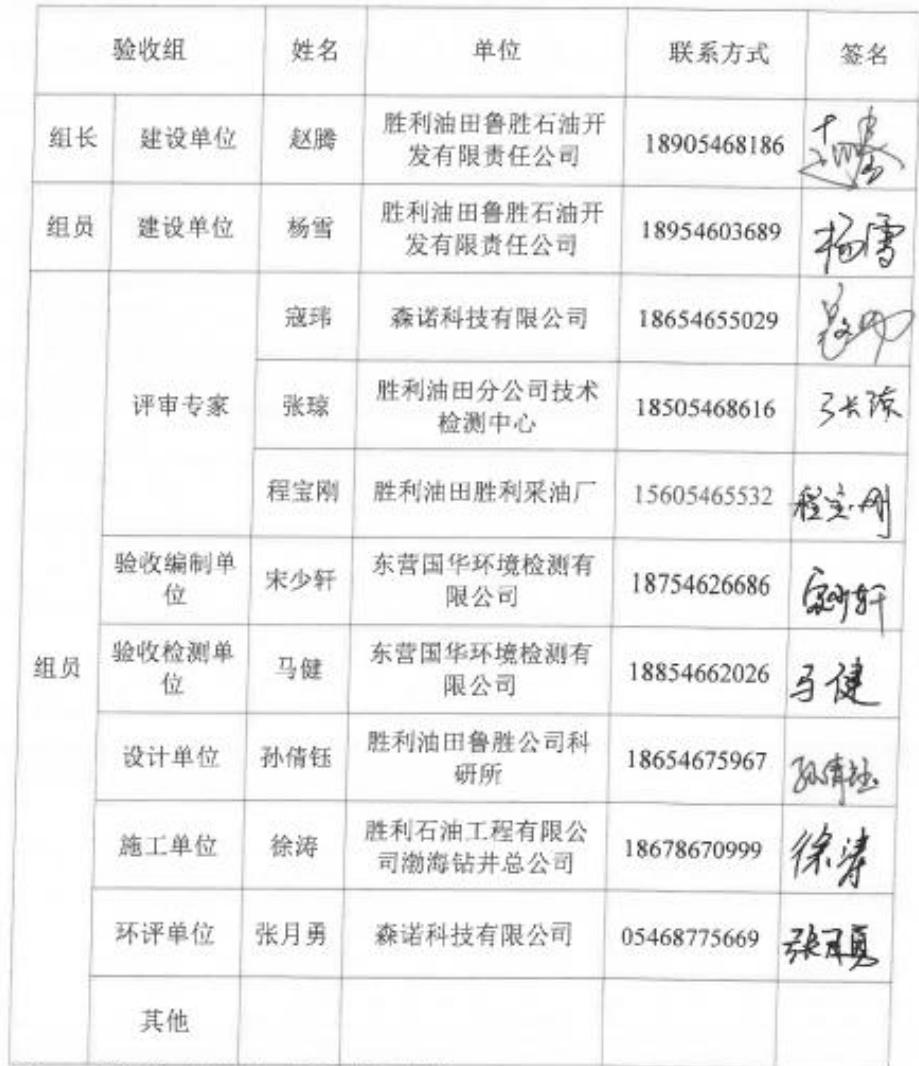 验收组 姓名 单位 联系方式 签名
组长 建设单位 赵腾 胜利油田鲁胜石油开
发有限责任公司 18905468186 赵腾
组员 建设单位 杨雪 胜利油田鲁胜石油开
发有限责任公司 18954603689 杨雪
组员
评审专家
寇玮 森诺科技有限公司 18654655029
张琼 胜利油田分公司技术
检测中心 18505468616 张琼
程宝刚 胜利油田胜利采油厂 15605465532 程宝刚
验收编制单
位 宋少轩 东营国华环境检测有
限公司 18754626686 宋少轩
验收检测单
位 马健 东营国华环境检测有
限公司 18854662026 马健
设计单位 孙倩钰 胜利油田鲁胜公司科
研所 18654675967 孙倩钰
施工单位 徐涛 胜利石油工程有限公
司渤海钻井总公司 18678670999 徐涛
环评单位 张月勇 森诺科技有限公司 05468775669 张月勇
其他